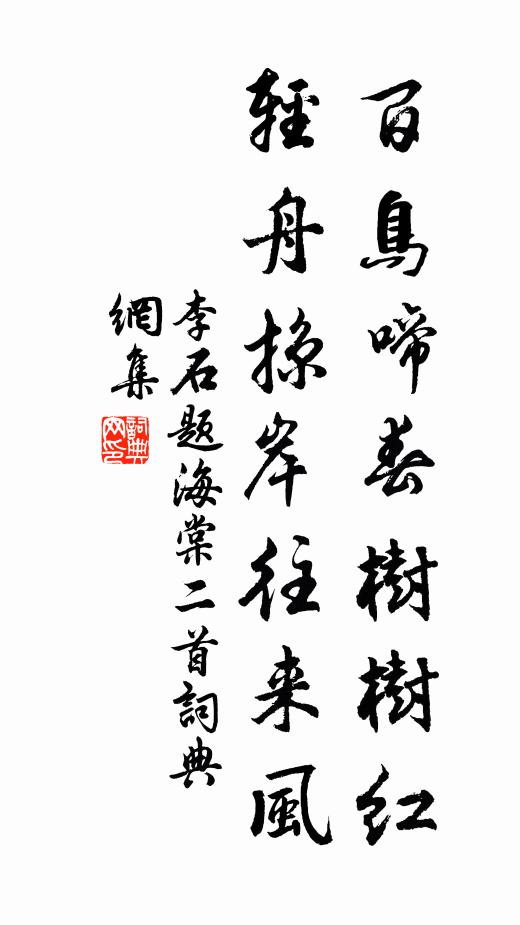 百鳥啼春樹樹紅
輕舟掠岸往来風
李石题海棠二首詞典
網集
詞典
网印